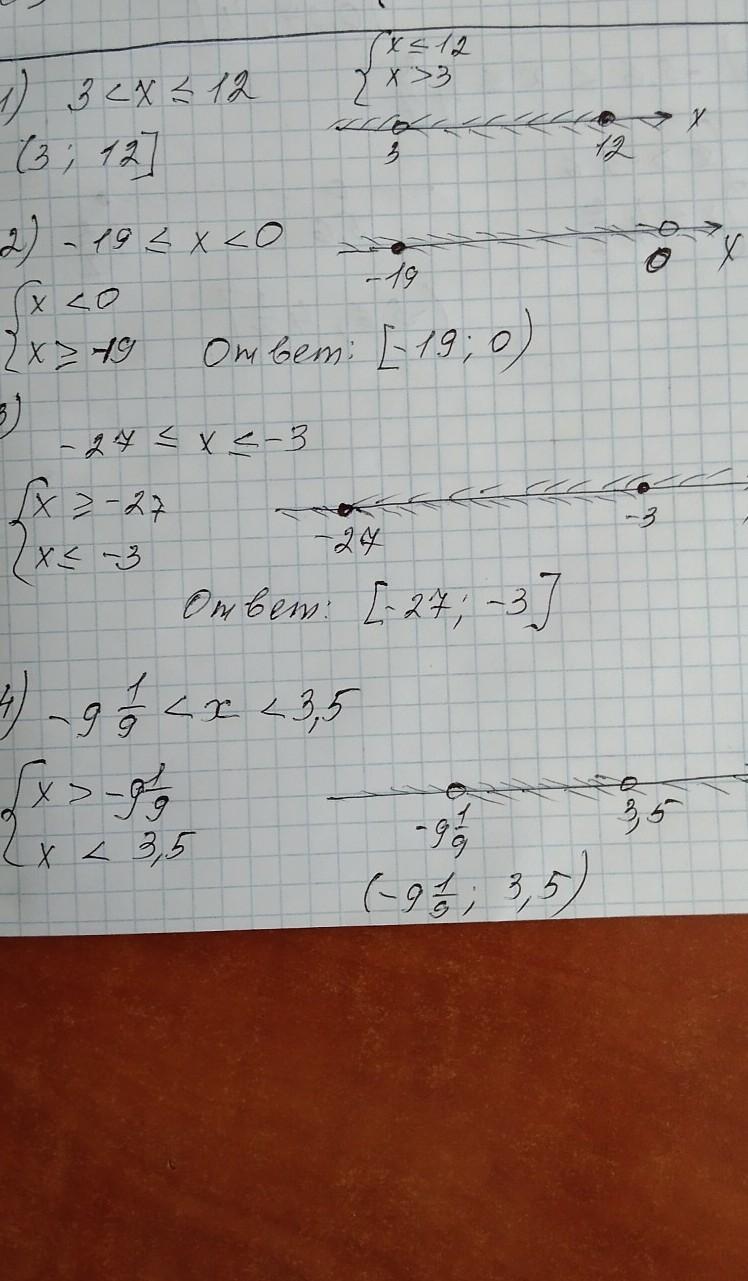 {x ≤ 12
x > 3
1) 3 < x ≤ 12
(3; 12]
3 12 x
2) -19 ≤ x < 0
-19 0 x
{x < 0
x ≥ -19
Ответ: [-19; 0)
3)
-27 ≤ x ≤ -3
{x ≥ -27
x ≤ -3
-27 -3
Ответ: [-27; -3]
4) -9 1/9 < x < 3,5
{x > -9 1/9
x < 3,5
-9 1/9 3,5
(-9 1/9; 3,5)